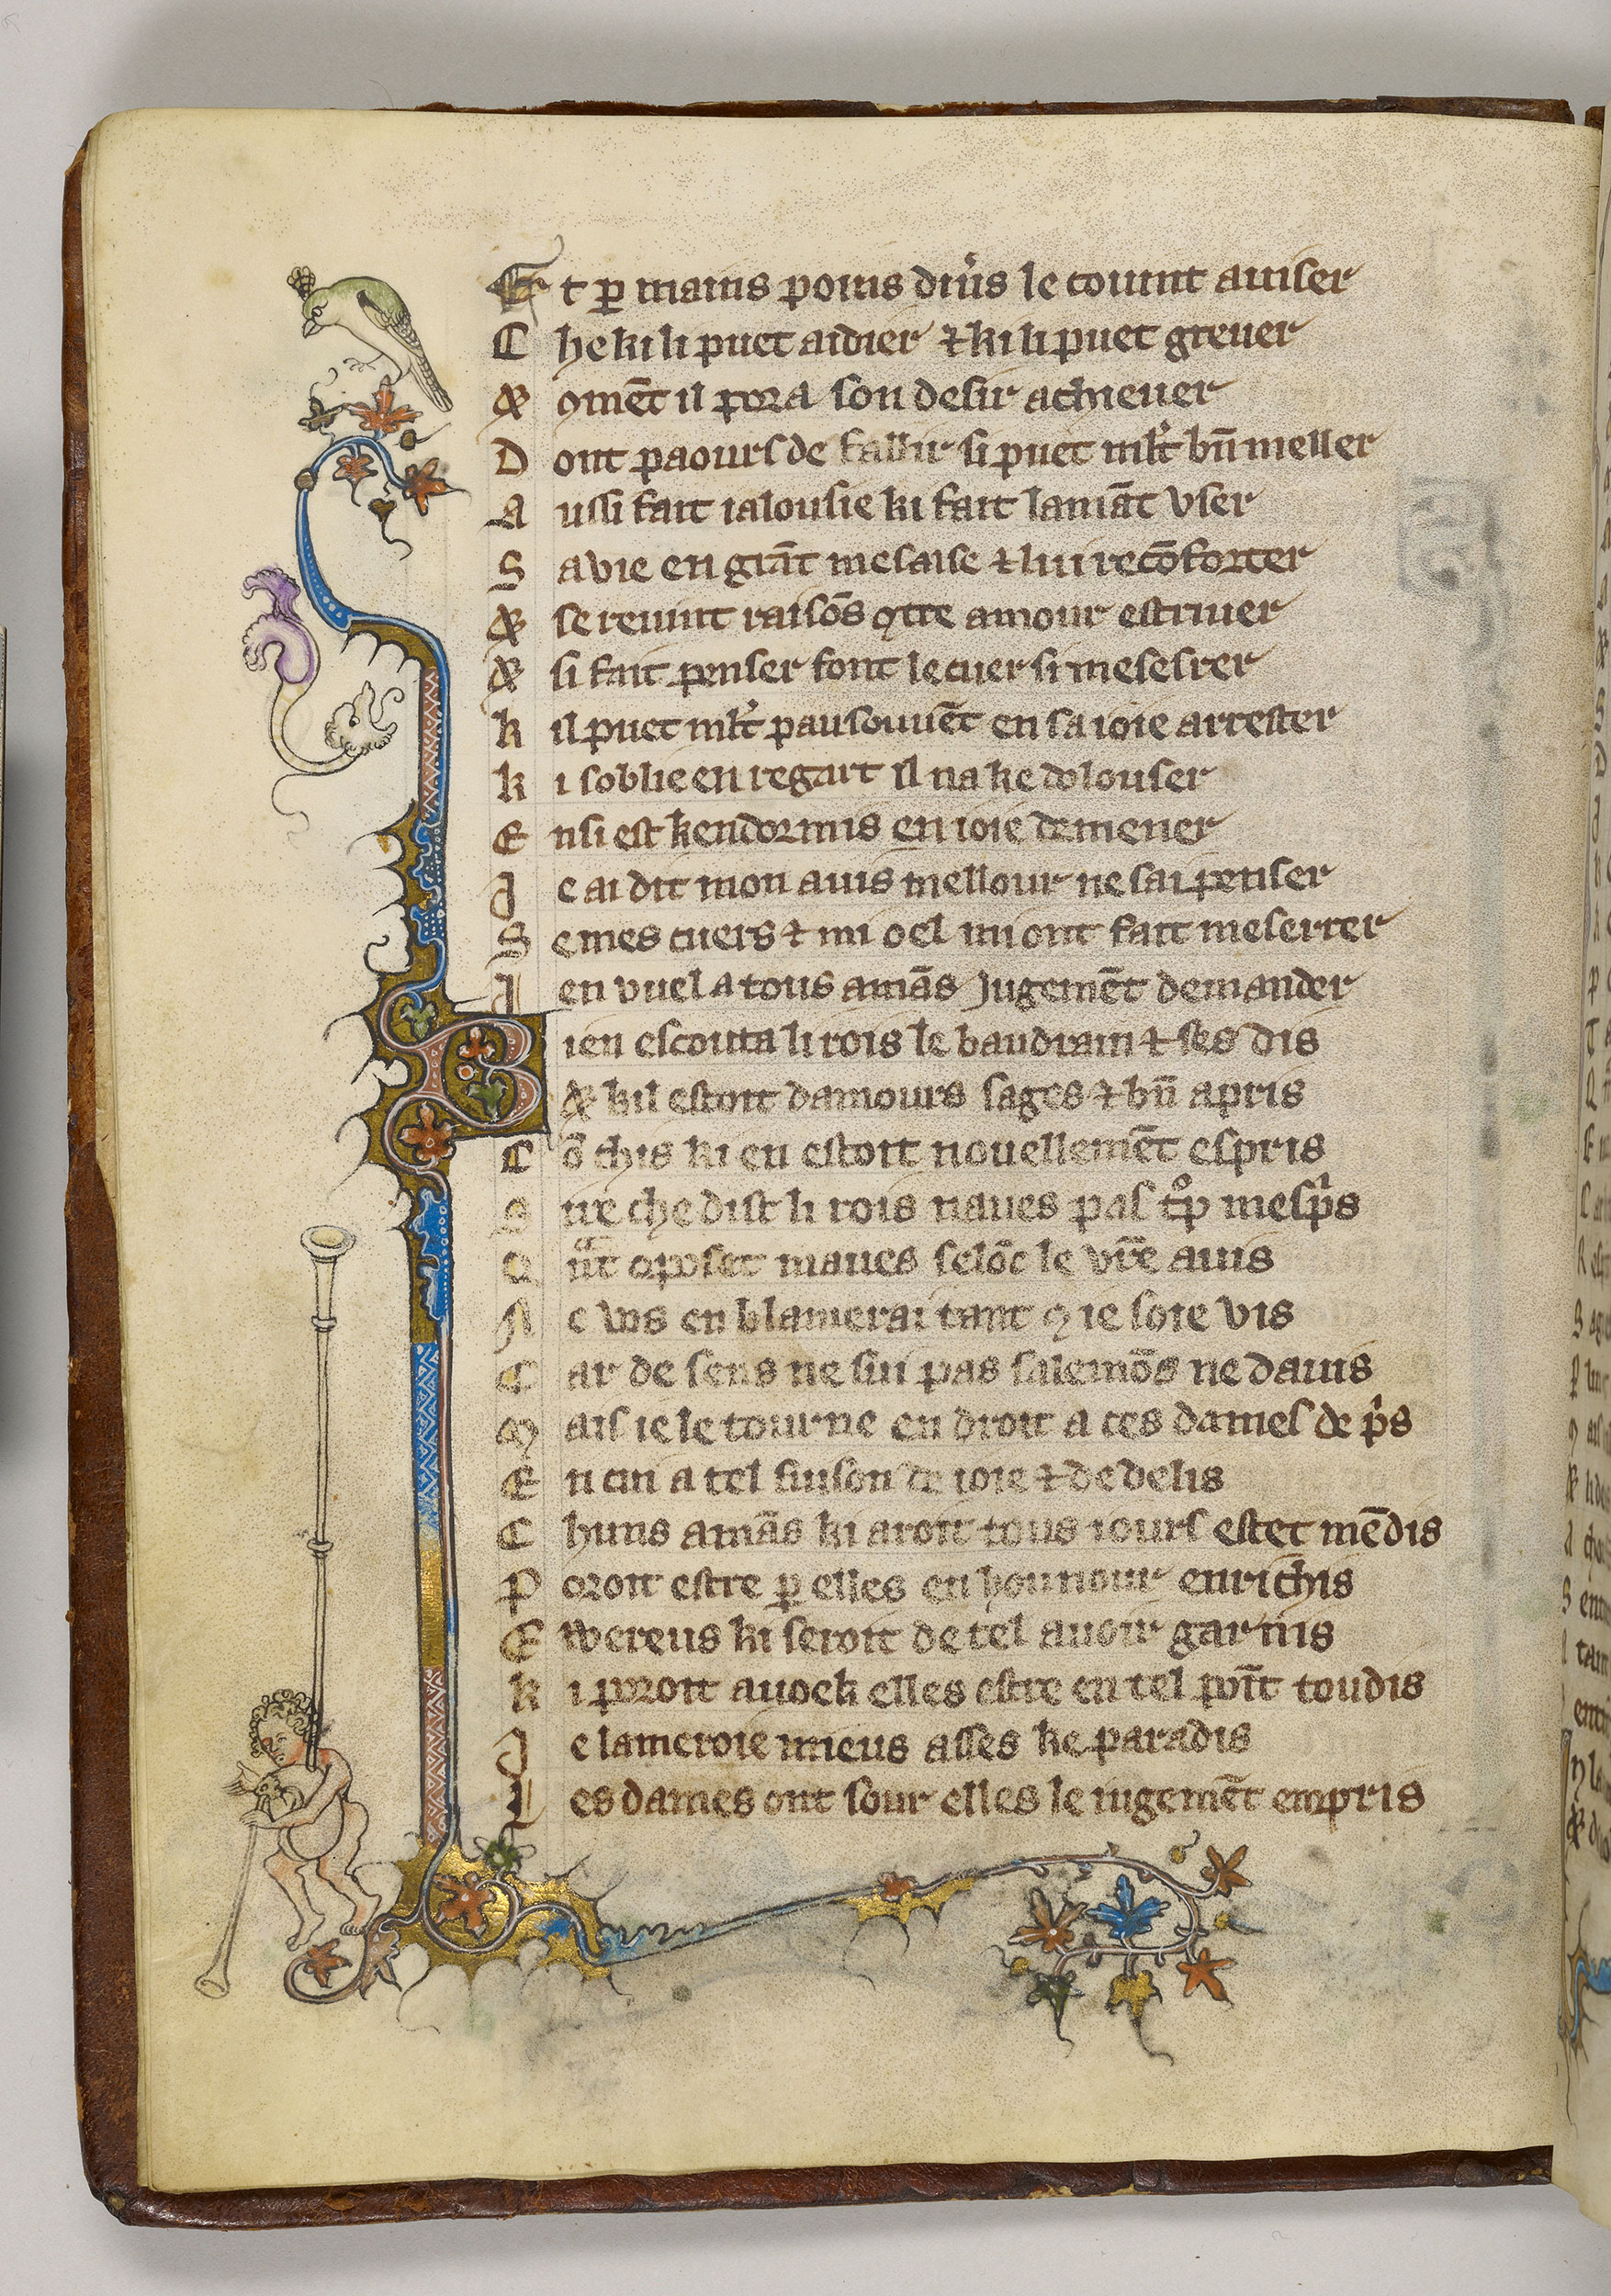 Et ꝑ mains poins diũs le couint auiser
Che ki li puet aidier ⁊ ki li puet greuer
Et ꝯmēt il pora son desir achieuer
Dont paours de fallir si puet ml̃t bñ meller
Aussi fait ialousie ki fait lamāt vser
Sa vie en grāt mesaise ⁊ lui recōforter
Et se reuint raisōs ꝯtre amour estriuer
Et si fait penser font le cuer si mesesrer
Kil puet ml̃t pau souuēt en sa ioie arrester
Ki soblie en regart il na ke dolouser
Ensi est kendormis en ioie demener
Je ai dit mon auis mellour ne sai penser
Se mes cuers ⁊ mi oel mi ont fait meserrer
Jen vuel a tous amās Jugemēt demander
Bien escouta li rois le baudrain ⁊ ses dis
Et kil estoit damours sages ⁊ bñ apris
Cō chis ki en estoit nouellemēt espris
Sire che dist li rois naues pas tͦp mespͥs
Qͣnt oposet maues selōc le vr̃e auis
Ne vos en blamerai tant ꝯ ie soie vis
Car de sens ne sui pas salemōs ne dauis
Mais ie le tourne en droit a ces dames de pͥs
En cui a tel fuison de ioie ⁊ de delis
Chuns amās ki aroit tous iours estet mēdis
Poroit estre ꝑ elles en hounour enrichis
Ewereus ki seroit de tel auoir garnis
Ki poroit auoek elles estre en tel poīt toudis
Je lameroie mieus asses ke paradis
Les dames ont sour elles le iugemēt empris